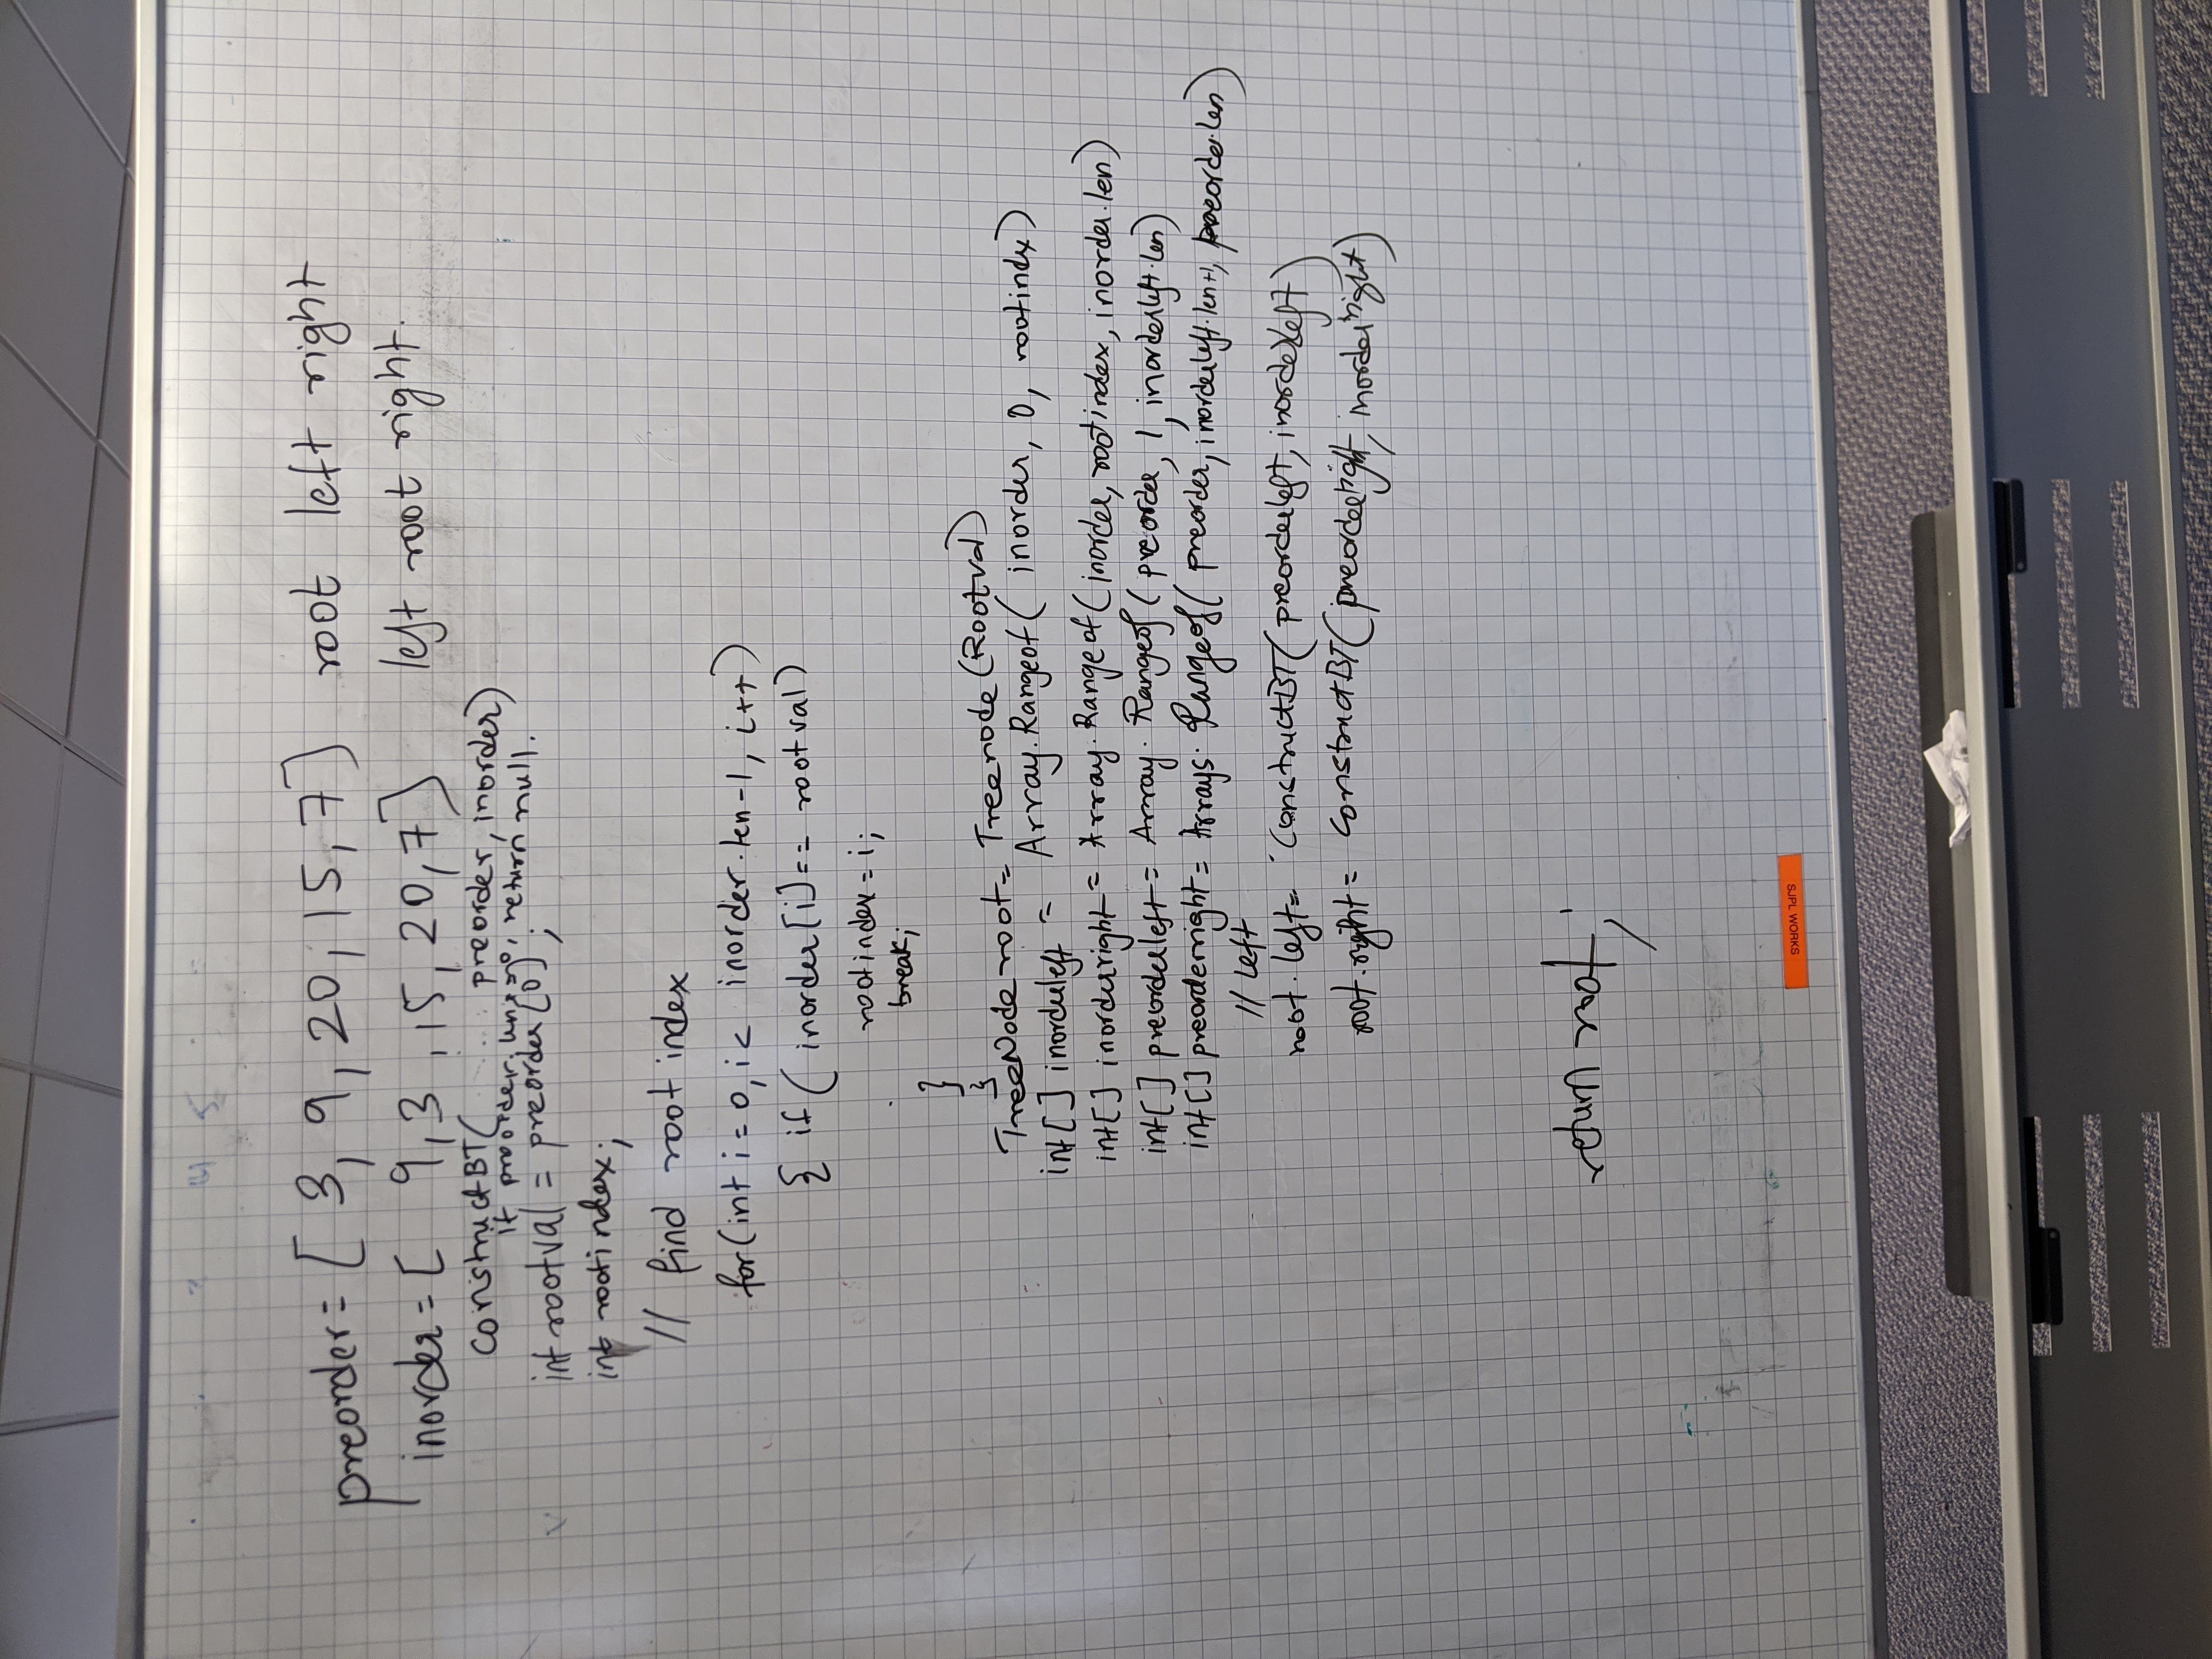 preorder = [ 3, 9, 20, 15, 7 ] root left right
inorder = [ 9, 3 , 15, 20, 7 ] left root right.
constructBT( preorder, inorder)
if preorder. len == 0, return null.
int rootval = preorder [0] ;
int rootindex;
// find root index
for (int i = 0, i < inorder.len-1, i++)
{ if ( inorder [i] == rootval)
rootindex = i;
break;
}
}
TreeNode root = Treenode (Rootval)
int [ ] inorderleft = Array. Rangeof ( inorder, 0, rootindx)
int [ ] inorderright = Array. Rangeof ( inorder, rootindex, inorder.len)
int [ ] preorderleft = Array. Rangeof ( preorder, 1, inorderleft.len)
int [ ] preorderright = Arrays. Rangeof ( preorder, inorderleft.len+1, preorder.len)
// Left
root. left = ConstructBT( preorderleft, inorderleft)
root.right = ConstructBT( preorderright, inorderright)
return root;
SJPL WORKS